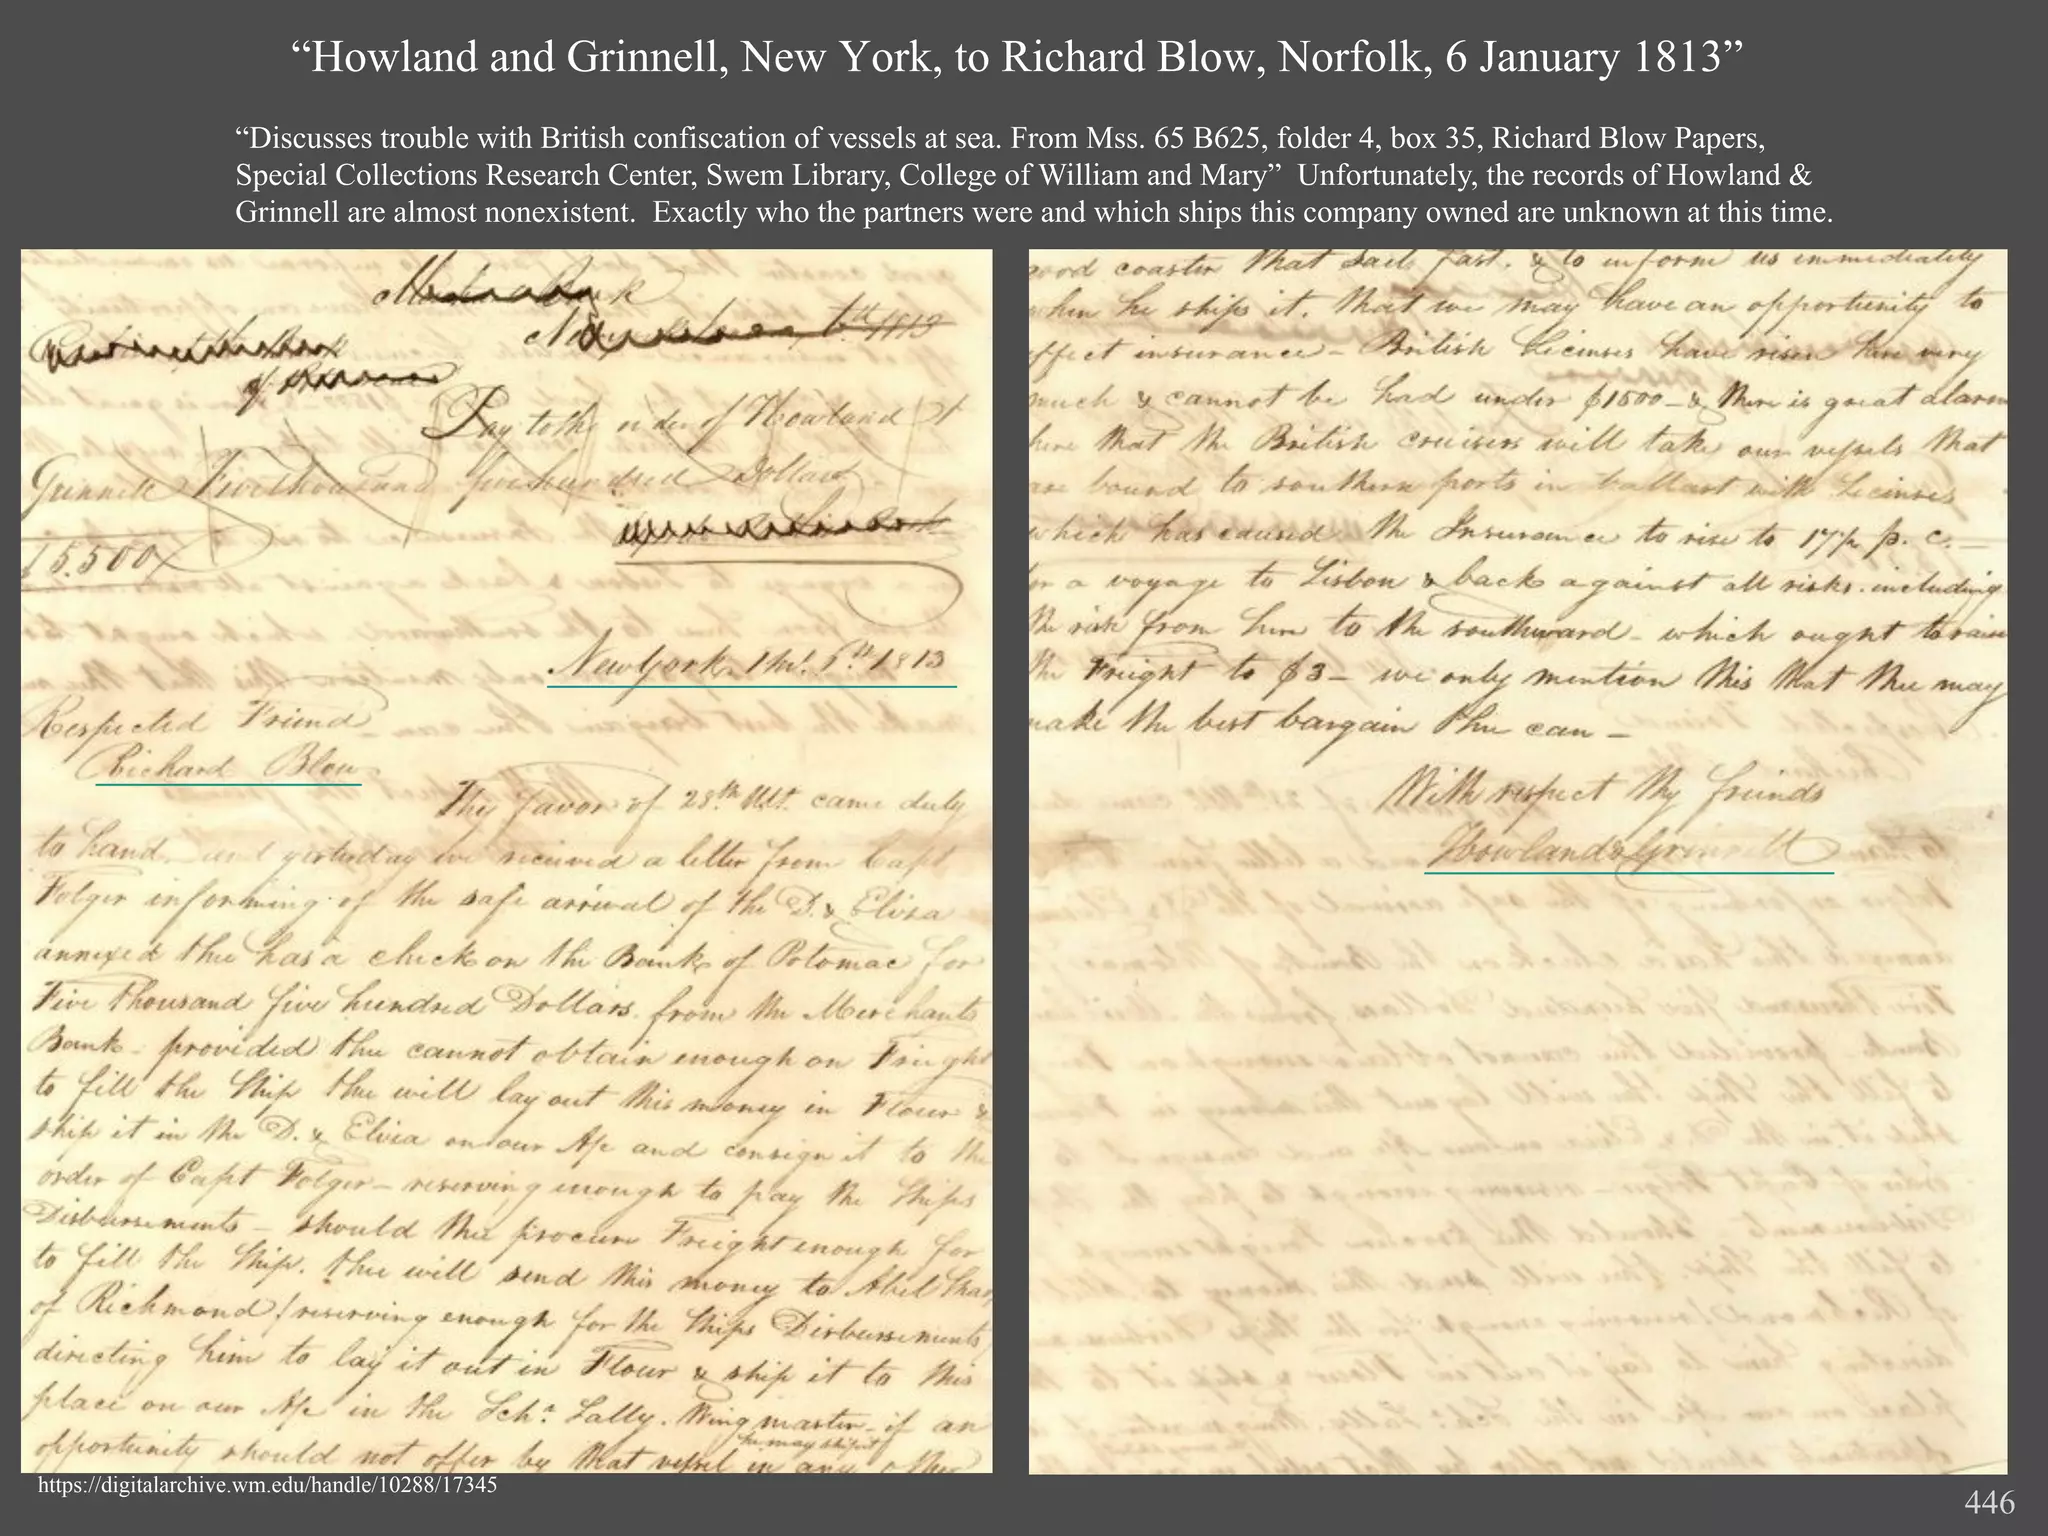 “Howland and Grinnell, New York, to Richard Blow, Norfolk, 6 January 1813”
“Discusses trouble with British confiscation of vessels at sea. From Mss. 65 B625, folder 4, box 35, Richard Blow Papers,
Special Collections Research Center, Swem Library, College of William and Mary”  Unfortunately, the records of Howland &
Grinnell are almost nonexistent.  Exactly who the partners were and which ships this company owned are unknown at this time.
6th 1813
of
Pay to the order of Howland &
Grinnell Five thousand five hundred Dollars
$5,500
New York 1 Mo. 6th 1813
Respected Friend
Richard Blow
Thy favor of 28th Ult. came duly
to hand and yesterday we received a letter from Capt
Folger informing of the safe arrival of the D. & Eliza
annexed thee has a check on the Bank of Potomac for
Five thousand five hundred Dollars from the Merchants
Bank - provided thee cannot obtain enough on Freight
to fill the Ship thee will lay out this money in Flour &
ship it in the D. & Eliza on our A/c and consign it to the
order of Capt Folger - reserving enough to pay the Ships
Disbursements - should thee procure Freight enough for
to fill the Ship. thee will send this money to Abel
of Richmond (reserving enough for the Ships Disbursements)
directing him to lay it out in Flour & ship it to this
place on our A/c in the Schr. Sally. Wing master - if an
he may ship it
opportunity should not offer by that vessel in any other
good coaster that sails fast. & to inform us immediately
when he ships it. that we may have an opportunity to
effect insurance - British Licenses have risen here very
much & cannot be had under $1500 - & there is great alarm
here that the British cruisers will take our vessels that
are bound to southern ports in ballast with Licenses
which has caused the Insurance to rise to 17½ p. c. -
for a voyage to Lisbon & back against all risks. including
the risk from here to the southward - which ought to raise
the Freight to $3 - we only mention this that thee may
make the best bargain thee can -
With respect thy friends
Howland & Grinnell
https://digitalarchive.wm.edu/handle/10288/17345
446